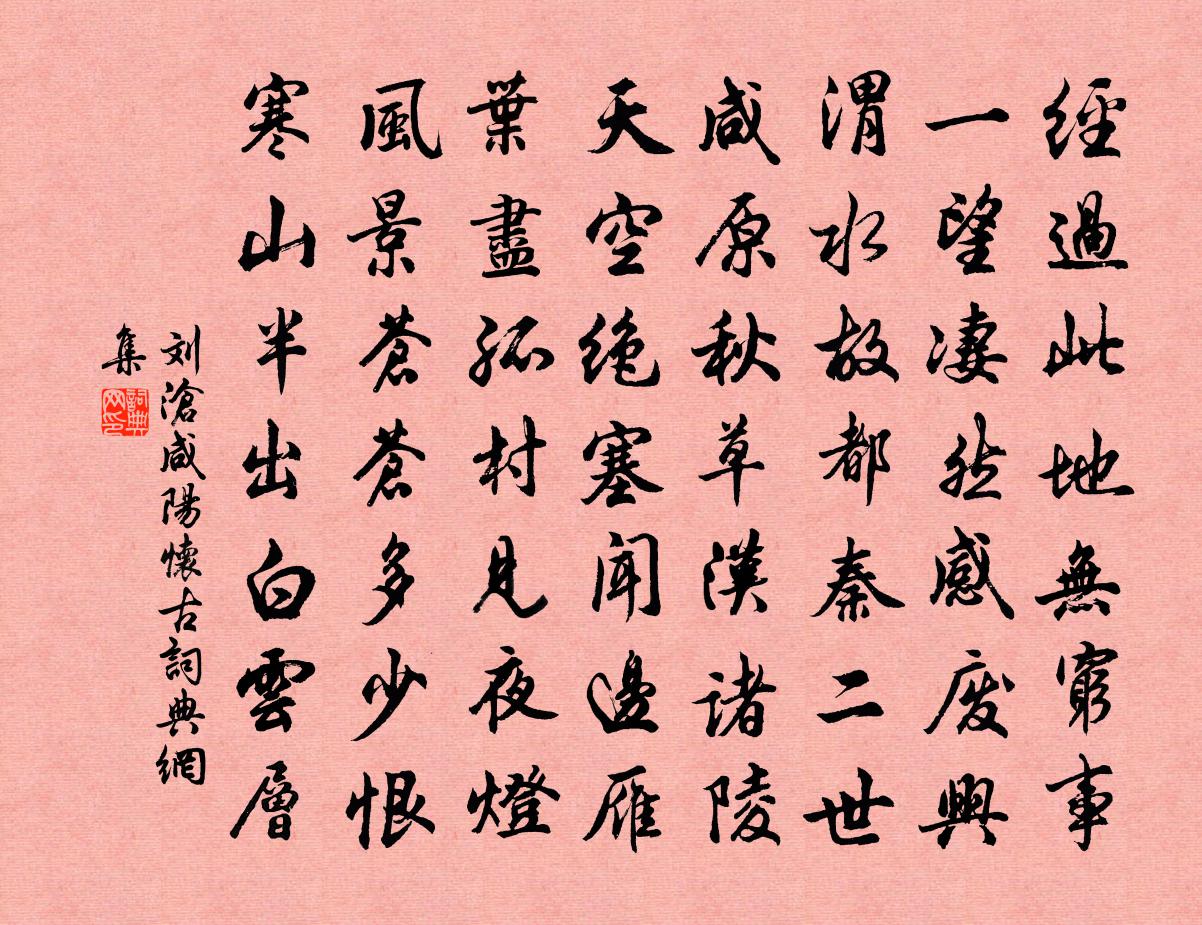 經過此地無窮事
一望淒然感废興
渭水故都秦二世
咸原秋草漢諸陵
天空绝塞聞邊雁
葉盡孤村見夜燈
風景蒼蒼多少恨
寒山半出白雲層
刘滄咸陽懷古詞典網
集
詞典
网印